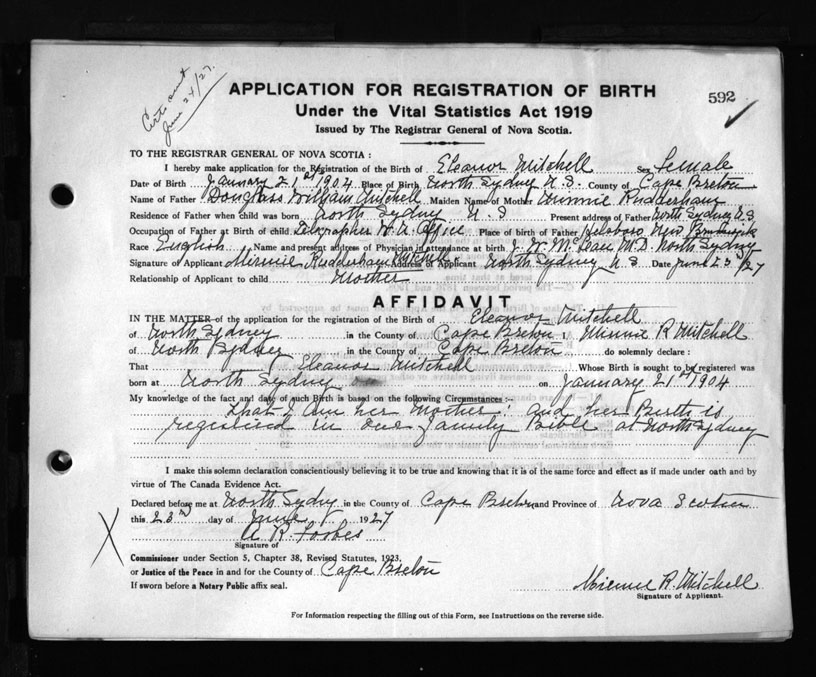 Certs out
June 24/27.
APPLICATION FOR REGISTRATION OF BIRTH
592
Under the Vital Statistics Act 1919
Issued by The Registrar General of Nova Scotia.
TO THE REGISTRAR GENERAL OF NOVA SCOTIA:
I hereby make application for the Registration of the Birth of Eleanor Mitchell Sex Female
Date of Birth January 21st 1904 Place of Birth North Sydney N.S. County of Cape Breton
Name of Father Douglass William Mitchell Maiden Name of Mother Minnie Rudderham
Residence of Father when child was born North Sydney N S Present address of Father North Sydney N.S.
Occupation of Father at Birth of child Telegrapher W.U. Office Place of birth of Father Hilsboro New Brunswick
Race English Name and present address of Physician in attendance at birth J. W. McLean M.D. North Sydney
Signature of Applicant Minnie Rudderham Mitchell Address of Applicant North Sydney N S Date June 23/27
Relationship of Applicant to child Mother
AFFIDAVIT
IN THE MATTER of the application for the registration of the Birth of Eleanor Mitchell
of North Sydney in the County of Cape Breton I Minnie R Mitchell
of North Sydney in the County of Cape Breton do solemnly declare:
That Eleanor Mitchell Whose Birth is sought to be registered was
born at North Sydney on January 21st 1904
My knowledge of the fact and date of such Birth is based on the following Circumstances:-
that I am her Mother! and her Birth is
registered in our family Bible at North Sydney
I make this solemn declaration conscientiously believing it to be true and knowing that it is of the same force and effect as if made under oath and by
virtue of The Canada Evidence Act.
Declared before me at North Sydney in the County of Cape Breton and Province of Nova Scotia
this 23rd day of June 1927
A. R. Forbes
Signature of
Commissioner under Section 5, Chapter 38, Revised Statutes, 1923,
or Justice of the Peace in and for the County of Cape Breton
If sworn before a Notary Public affix seal.
Minnie R. Mitchell
Signature of Applicant.
For Information respecting the filling out of this Form, see Instructions on the reverse side.